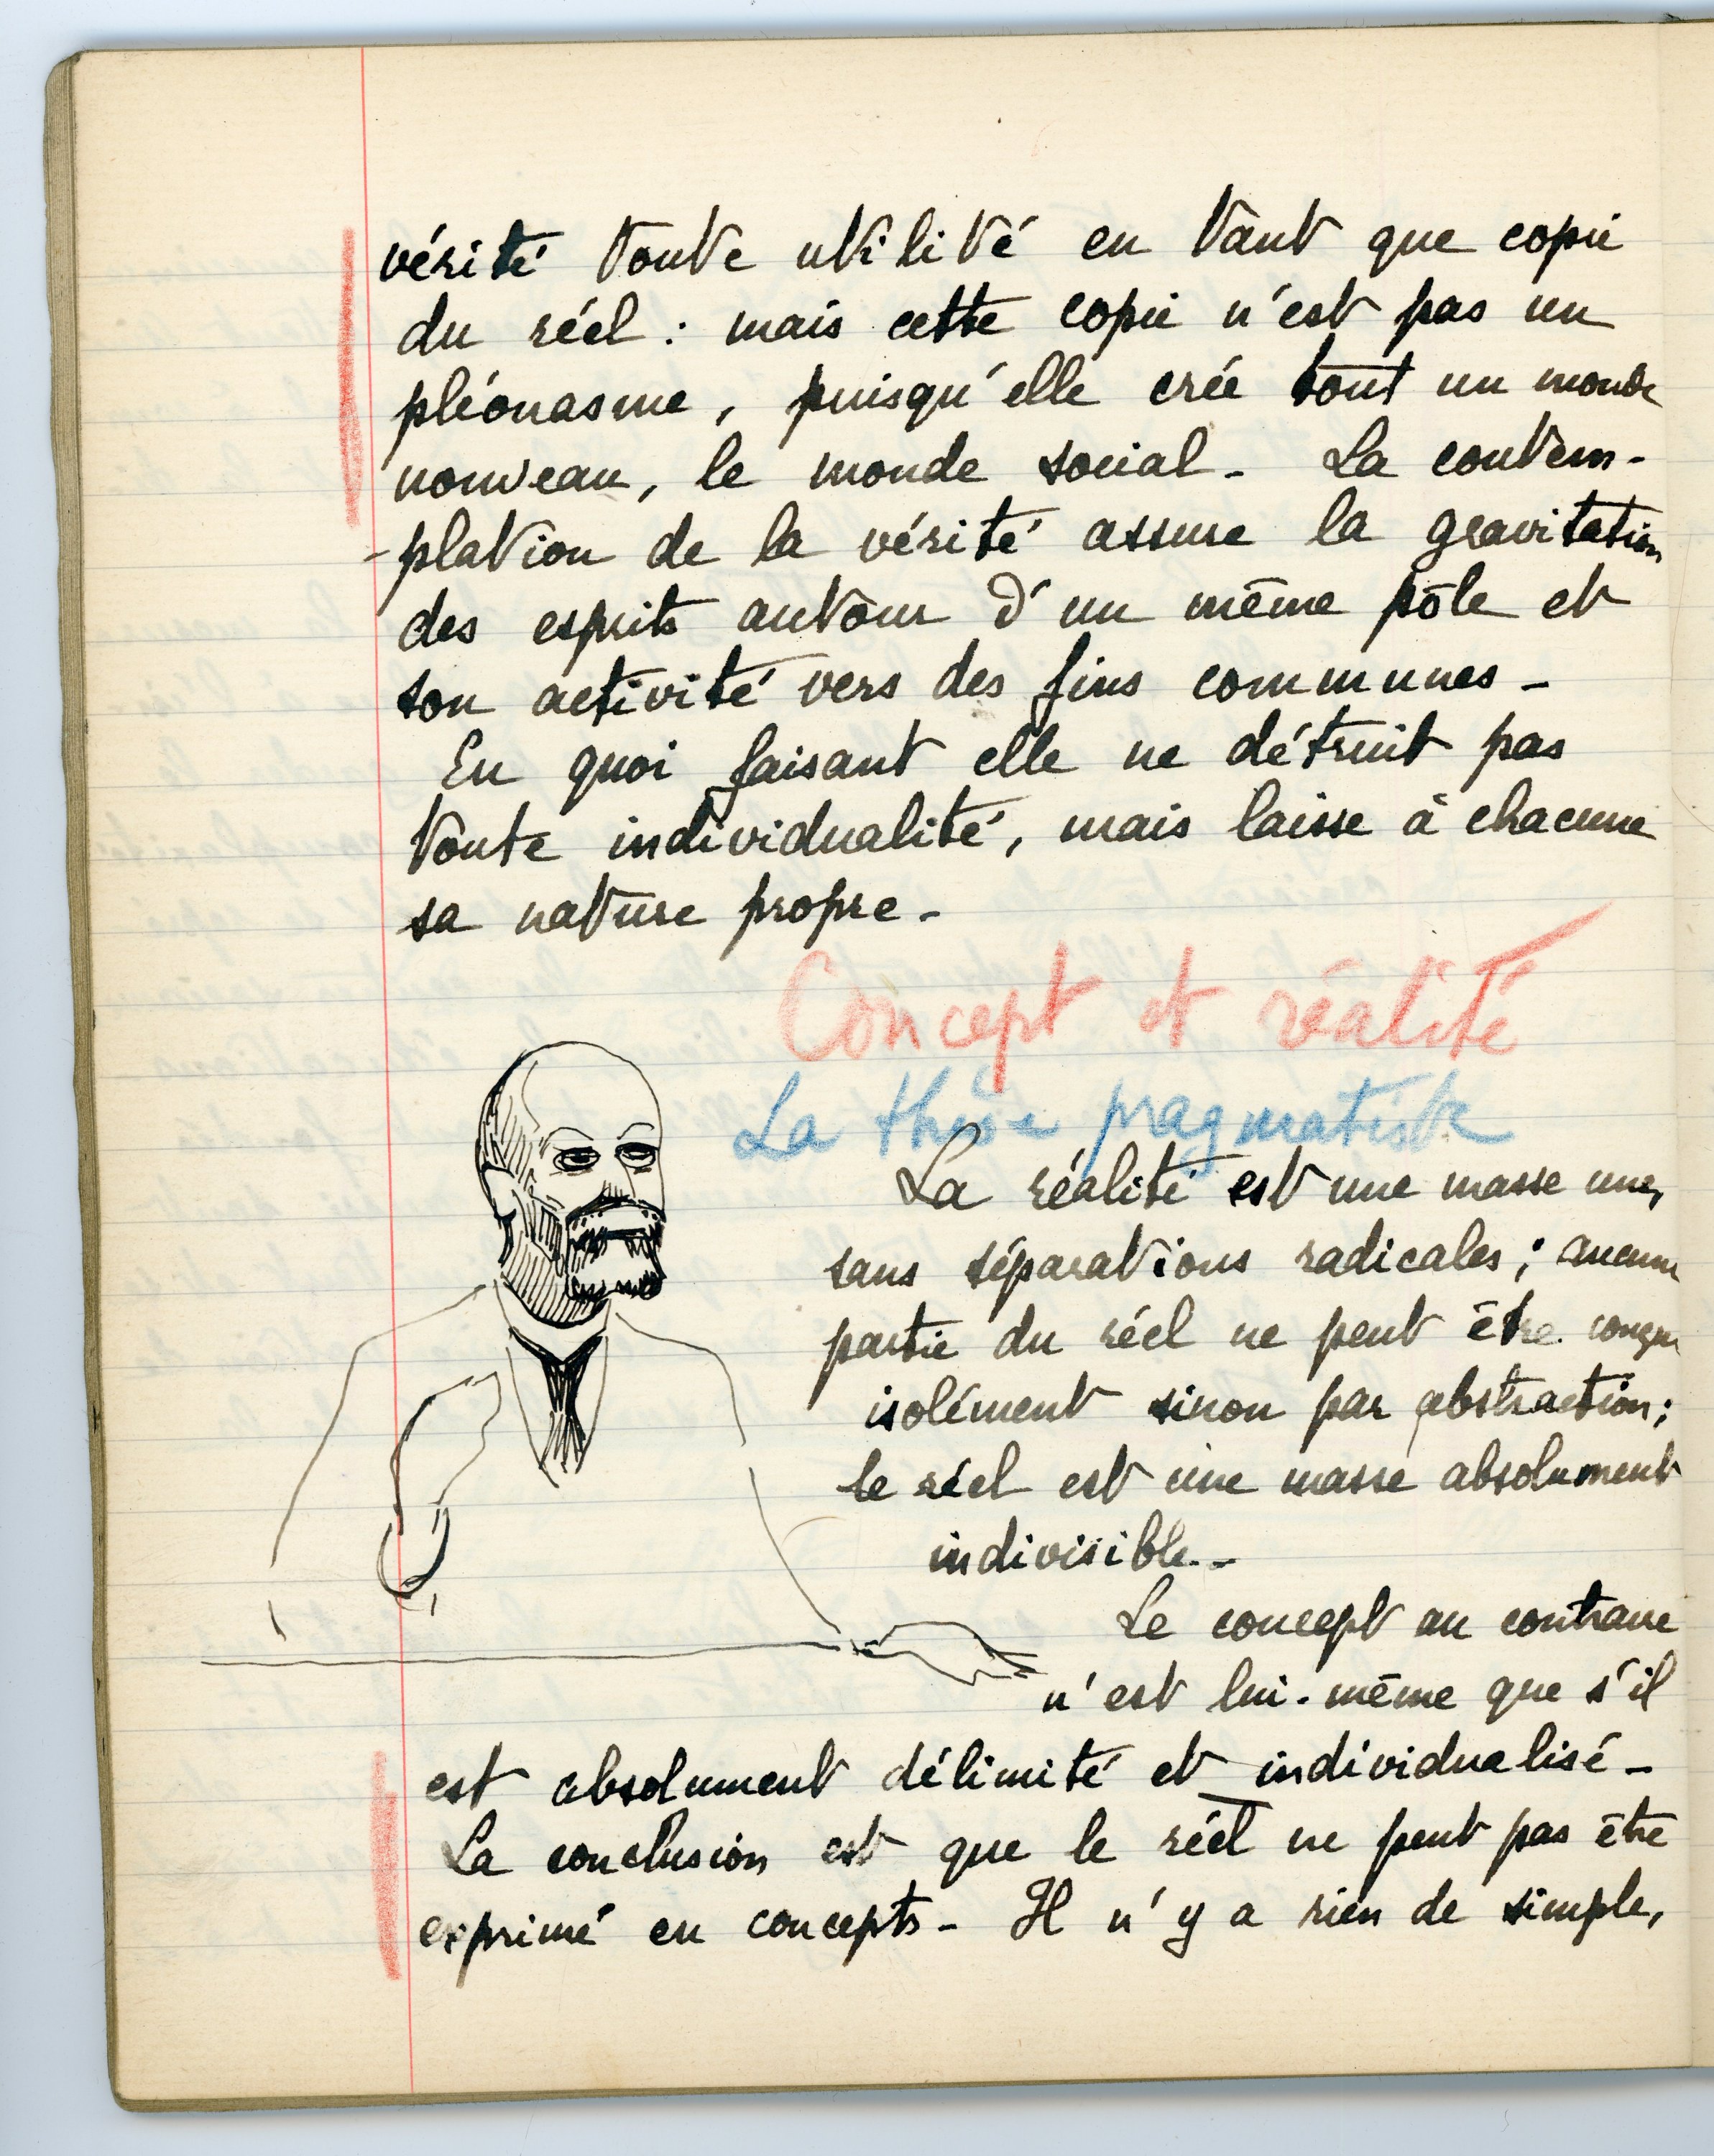 vérité toute utilité en tant que copie
du réel : mais cette copie n'est pas un
pléonasme, puisqu'elle crée tout un monde
nouveau, le monde social - La contem-
-plation de la vérité assure la gravitation
des esprits autour d'un même pôle et
son activité vers des fins communes -
En quoi faisant elle ne détruit pas
toute individualité, mais laisse à chacune
sa nature propre -
Concept et réalité
La thèse pragmatiste
La réalité est une masse une,
sans séparations radicales ; aucune
partie du réel ne peut être conçue
isolément sinon par abstraction ;
le réel est une masse absolument
indivisible. -
Le concept au contraire
n'est lui-même que s'il
est absolument délimité et individualisé -
La conclusion est que le réel ne peut pas être
exprimé en concepts - Il n'y a rien de simple,